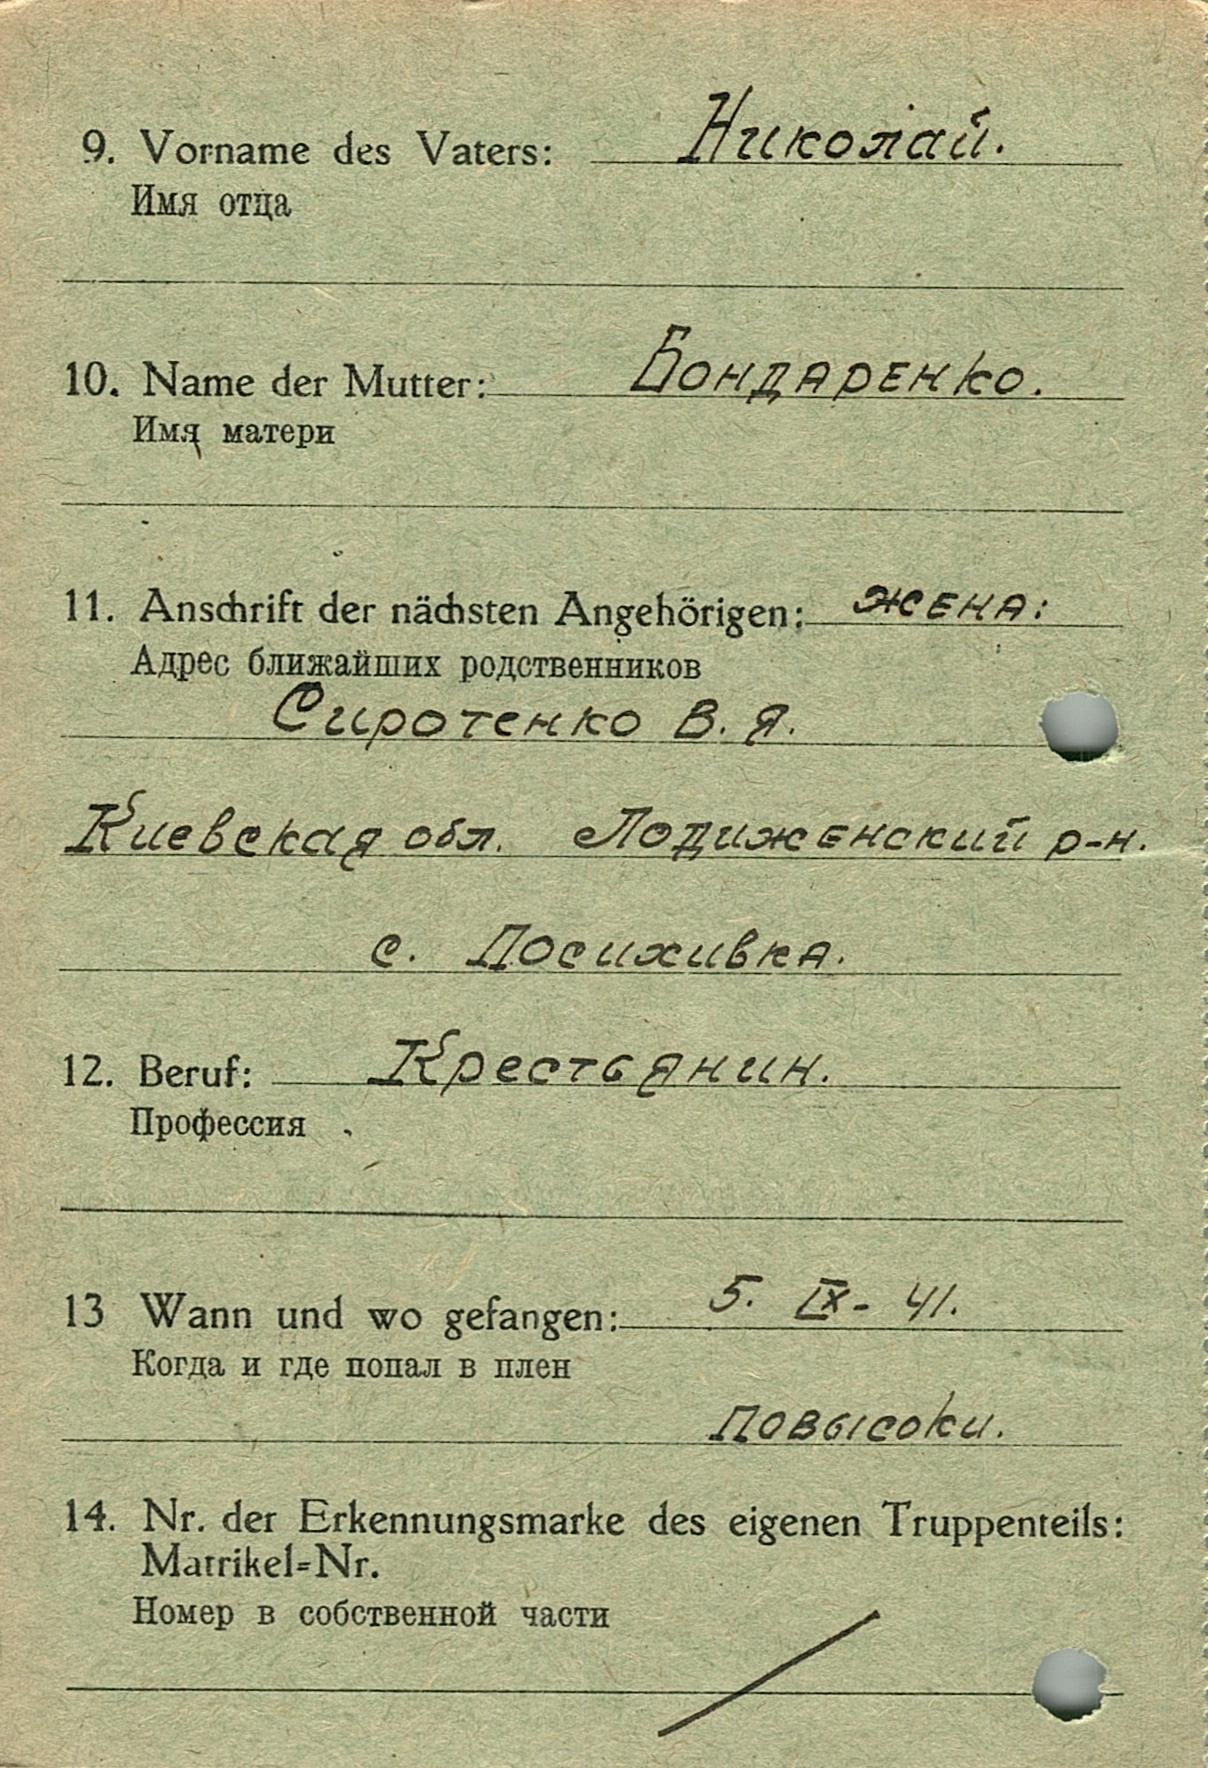 9. Vorname des Vaters: Николай.
Имя отца
10. Name der Mutter: Бондаренко.
Имя матери
11. Anschrift der nächsten Angehörigen: жена:
Адрес ближайших родственников
Сиротенко В. Я.
Киевская обл. Лодиженский р-н.
с. Посиживка.
12. Beruf: Крестьянин.
Профессия
13 Wann und wo gefangen: 5. IX- 41.
Когда и где попал в плен
Повысоки.
14. Nr. der Erkennungsmarke des eigenen Truppenteils:
Matrikel=Nr.
Номер в собственной части